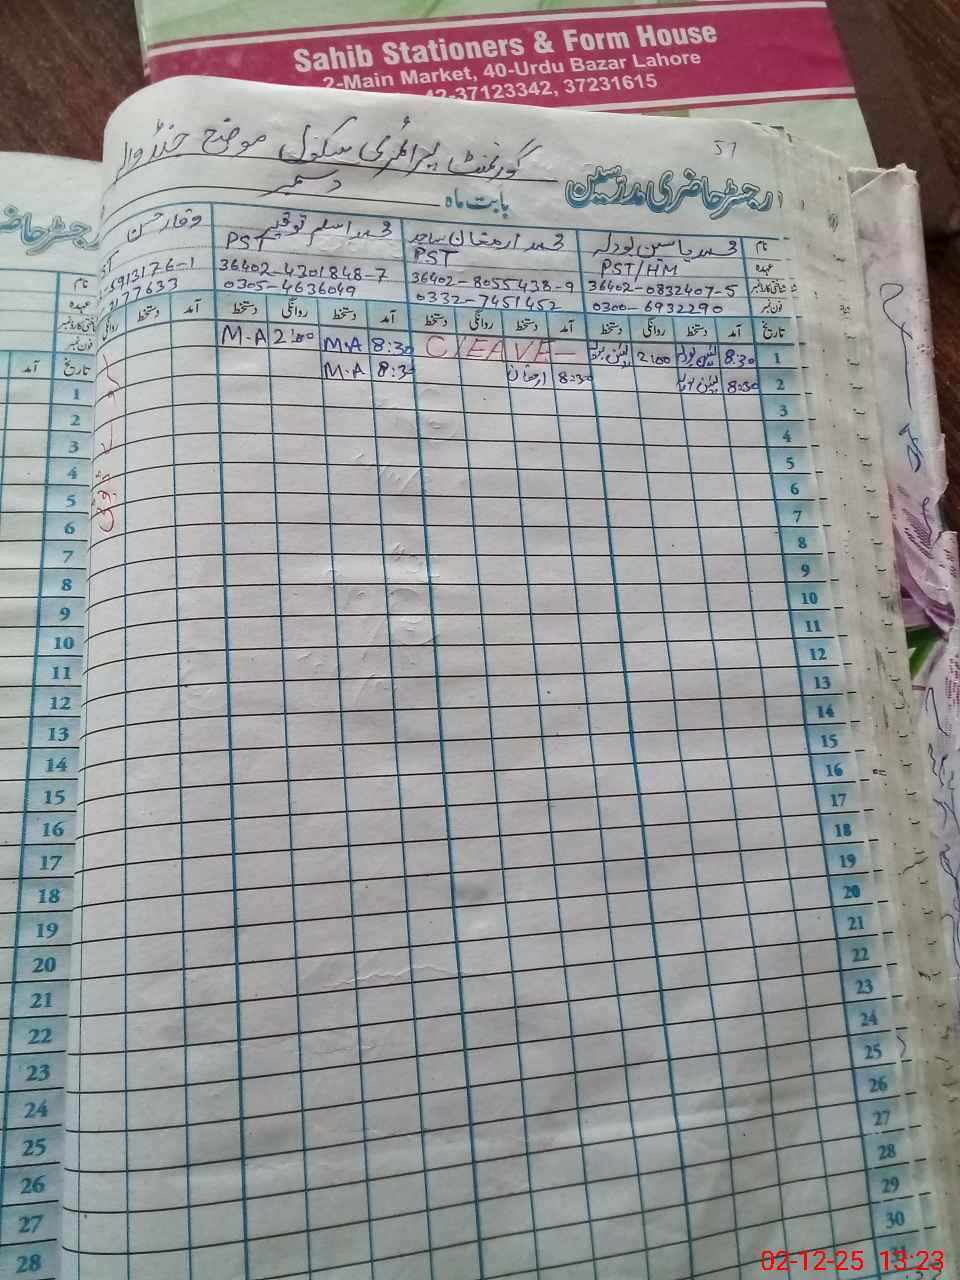 Sahib Stationers & Form House
2-Main Market, 40-Urdu Bazar Lahore
42-37123342, 37231615
51
گورنمنٹ پرائمری سکول موضع
رجسٹر حاضری مدرسین
بابت ماہ دسمبر
نام محمد یاسین لودلہ محمد ارمغان ساجد محمد اسلم توقیر وقار حسن
عہدہ PST/HM PST PST
36402-0832407-5 36402-8055438-9 36402-4301848-7 5913176-1
فون نمبر 0300-6932290 0332-7451452 0305-4636049 177633
تاریخ آمد دستخط روانگی دستخط آمد دستخط روانگی دستخط آمد دستخط روانگی دستخط آمد دستخط روانگی
1 8:30 2:00 C/LEAVE- 8:30 M.A 2:00 M.A
2 8:30 8:30 ارمغان 8:30 M.A
3
4
5
6
7
8
9
10
11
12
13
14
15
16
17
18
19
20
21
22
23
24
25
26
27
28
29
30
31
رجسٹر حا
نام
عہدہ
فون نمبر
تاریخ آمد
1
2
3
4
5
6
7
8
9
10
11
12
13
14
15
16
17
18
19
20
21
22
23
24
25
26
27
28
02-12-25 13:23